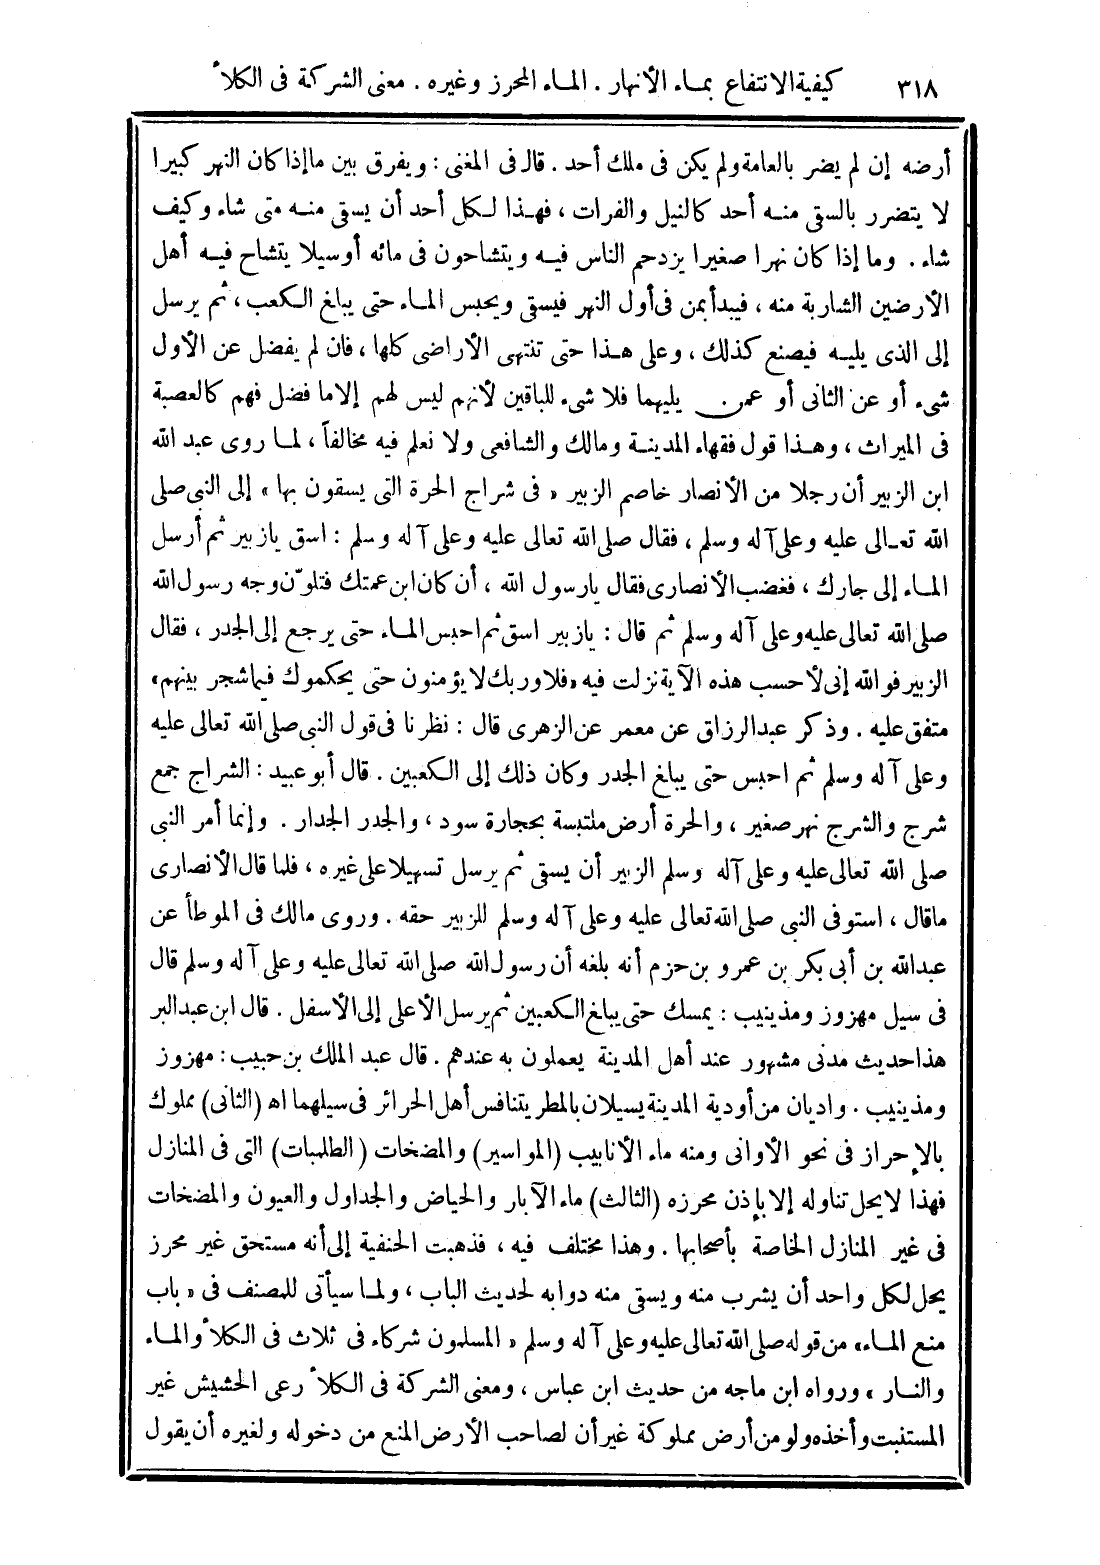 ٣١٨ كيفية الانتفاع بماء الأنهار . الماء المحرز وغيره . معنى الشركة فى الكلأ
أرضه إن لم يضر بالعامة ولم يكن فى ملك أحد . قال فى المغنى : ويفرق بين ما إذا كان النهر كبيرا
لا يتضرر بالسقى منه أحد كالنيل والفرات ، فهذا لكل أحد أن يسقى منه متى شاء وكيف
شاء . وما إذا كان نهرا صغيرا يزدحم الناس فيه ويتشاحون فى مائه أو سيلا يتشاح فيه أهل
الأرضين الشاربة منه ، فيبدأ بمن فى أول النهر فيسقى ويحبس الماء حتى يبلغ الكعب ، ثم يرسل
إلى الذى يليه فيصنع كذلك ، وعلى هذا حتى تنتهى الأراضى كلها ، فان لم يفضل عن الأول
شىء أو عن الثانى أو عمن يليهما فلا شىء للباقين لأنهم ليس لهم إلا ما فضل فهم كالعصبة
فى الميراث ، وهذا قول فقهاء المدينة ومالك والشافعى ولا نعلم فيه مخالفاً ، لما روى عبد الله
ابن الزبير أن رجلا من الأنصار خاصم الزبير « فى شراج الحرة التى يسقون بها » إلى النبى صلى
الله تعالى عليه وعلى آله وسلم ، فقال صلى الله تعالى عليه وعلى آله وسلم : اسق يازبير ثم أرسل
الماء إلى جارك ، فغضب الأنصارى فقال يارسول الله ، أن كان ابن عمتك فتلوّن وجه رسول الله
صلى الله تعالى عليه وعلى آله وسلم ثم قال : يازبير اسق ثم احبس الماء حتى يرجع إلى الجدر ، فقال
الزبير فو الله إنى لأحسب هذه الآية نزلت فيه « فلا وربك لا يؤمنون حتى يحكموك فيما شجر بينهم »
متفق عليه . وذكر عبد الرزاق عن معمر عن الزهرى قال : نظرنا فى قول النبى صلى الله تعالى عليه
وعلى آله وسلم ثم احبس حتى يبلغ الجدر وكان ذلك إلى الكعبين . قال أبو عبيد : الشراج جمع
شرج والشرج نهر صغير ، والحرة أرض ملتبسة بحجارة سود ، والجدر الجدار . وإنما أمر النبى
صلى الله تعالى عليه وعلى آله وسلم الزبير أن يسقى ثم يرسل تسهيلا على غيره ، فلما قال الأنصارى
ماقال ، استوفى النبى صلى الله تعالى عليه وعلى آله وسلم للزبير حقه . وروى مالك فى الموطأ عن
عبد الله بن أبى بكر بن عمرو بن حزم أنه بلغه أن رسول الله صلى الله تعالى عليه وعلى آله وسلم قال
فى سيل مهزوز ومذينيب : يمسك حتى يبلغ الكعبين ثم يرسل الأعلى إلى الأسفل . قال ابن عبد البر
هذا حديث مدنى مشهور عند أهل المدينة يعملون به عندهم . قال عبد الملك بن حبيب : مهزوز
ومذينيب . واديان من أودية المدينة يسيلان بالمطر يتنافس أهل الحرائر فى سيلهما اه (الثانى) مملوك
بالإحراز فى نحو الأوانى ومنه ماء الأنابيب (المواسير) والمضخات (الطلمبات) التى فى المنازل
فهذا لا يحل تناوله إلا بإذن محرزه (الثالث) ماء الآبار والحياض والجداول والعيون والمضخات
فى غير المنازل الخاصة بأصحابها . وهذا مختلف فيه ، فذهبت الحنفية إلى أنه مستحق غير محرز
يحل لكل واحد أن يشرب منه ويسقى منه دوابه لحديث الباب ، ولما سيأتى للمصنف فى « باب
منع الماء » من قوله صلى الله تعالى عليه وعلى آله وسلم « المسلمون شركاء فى ثلاث فى الكلأ والماء
والنار » ورواه ابن ماجه من حديث ابن عباس ، ومعنى الشركة فى الكلأ رعى الحشيش غير
المستنبت وأخذه ولو من أرض مملوكة غير أن لصاحب الأرض المنع من دخوله ولغيره أن يقول